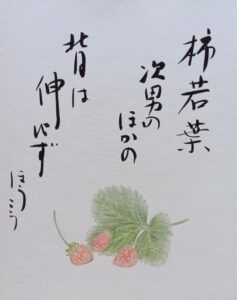 柿若葉
次男の
ほかの
背は
伸びず
ほうこう